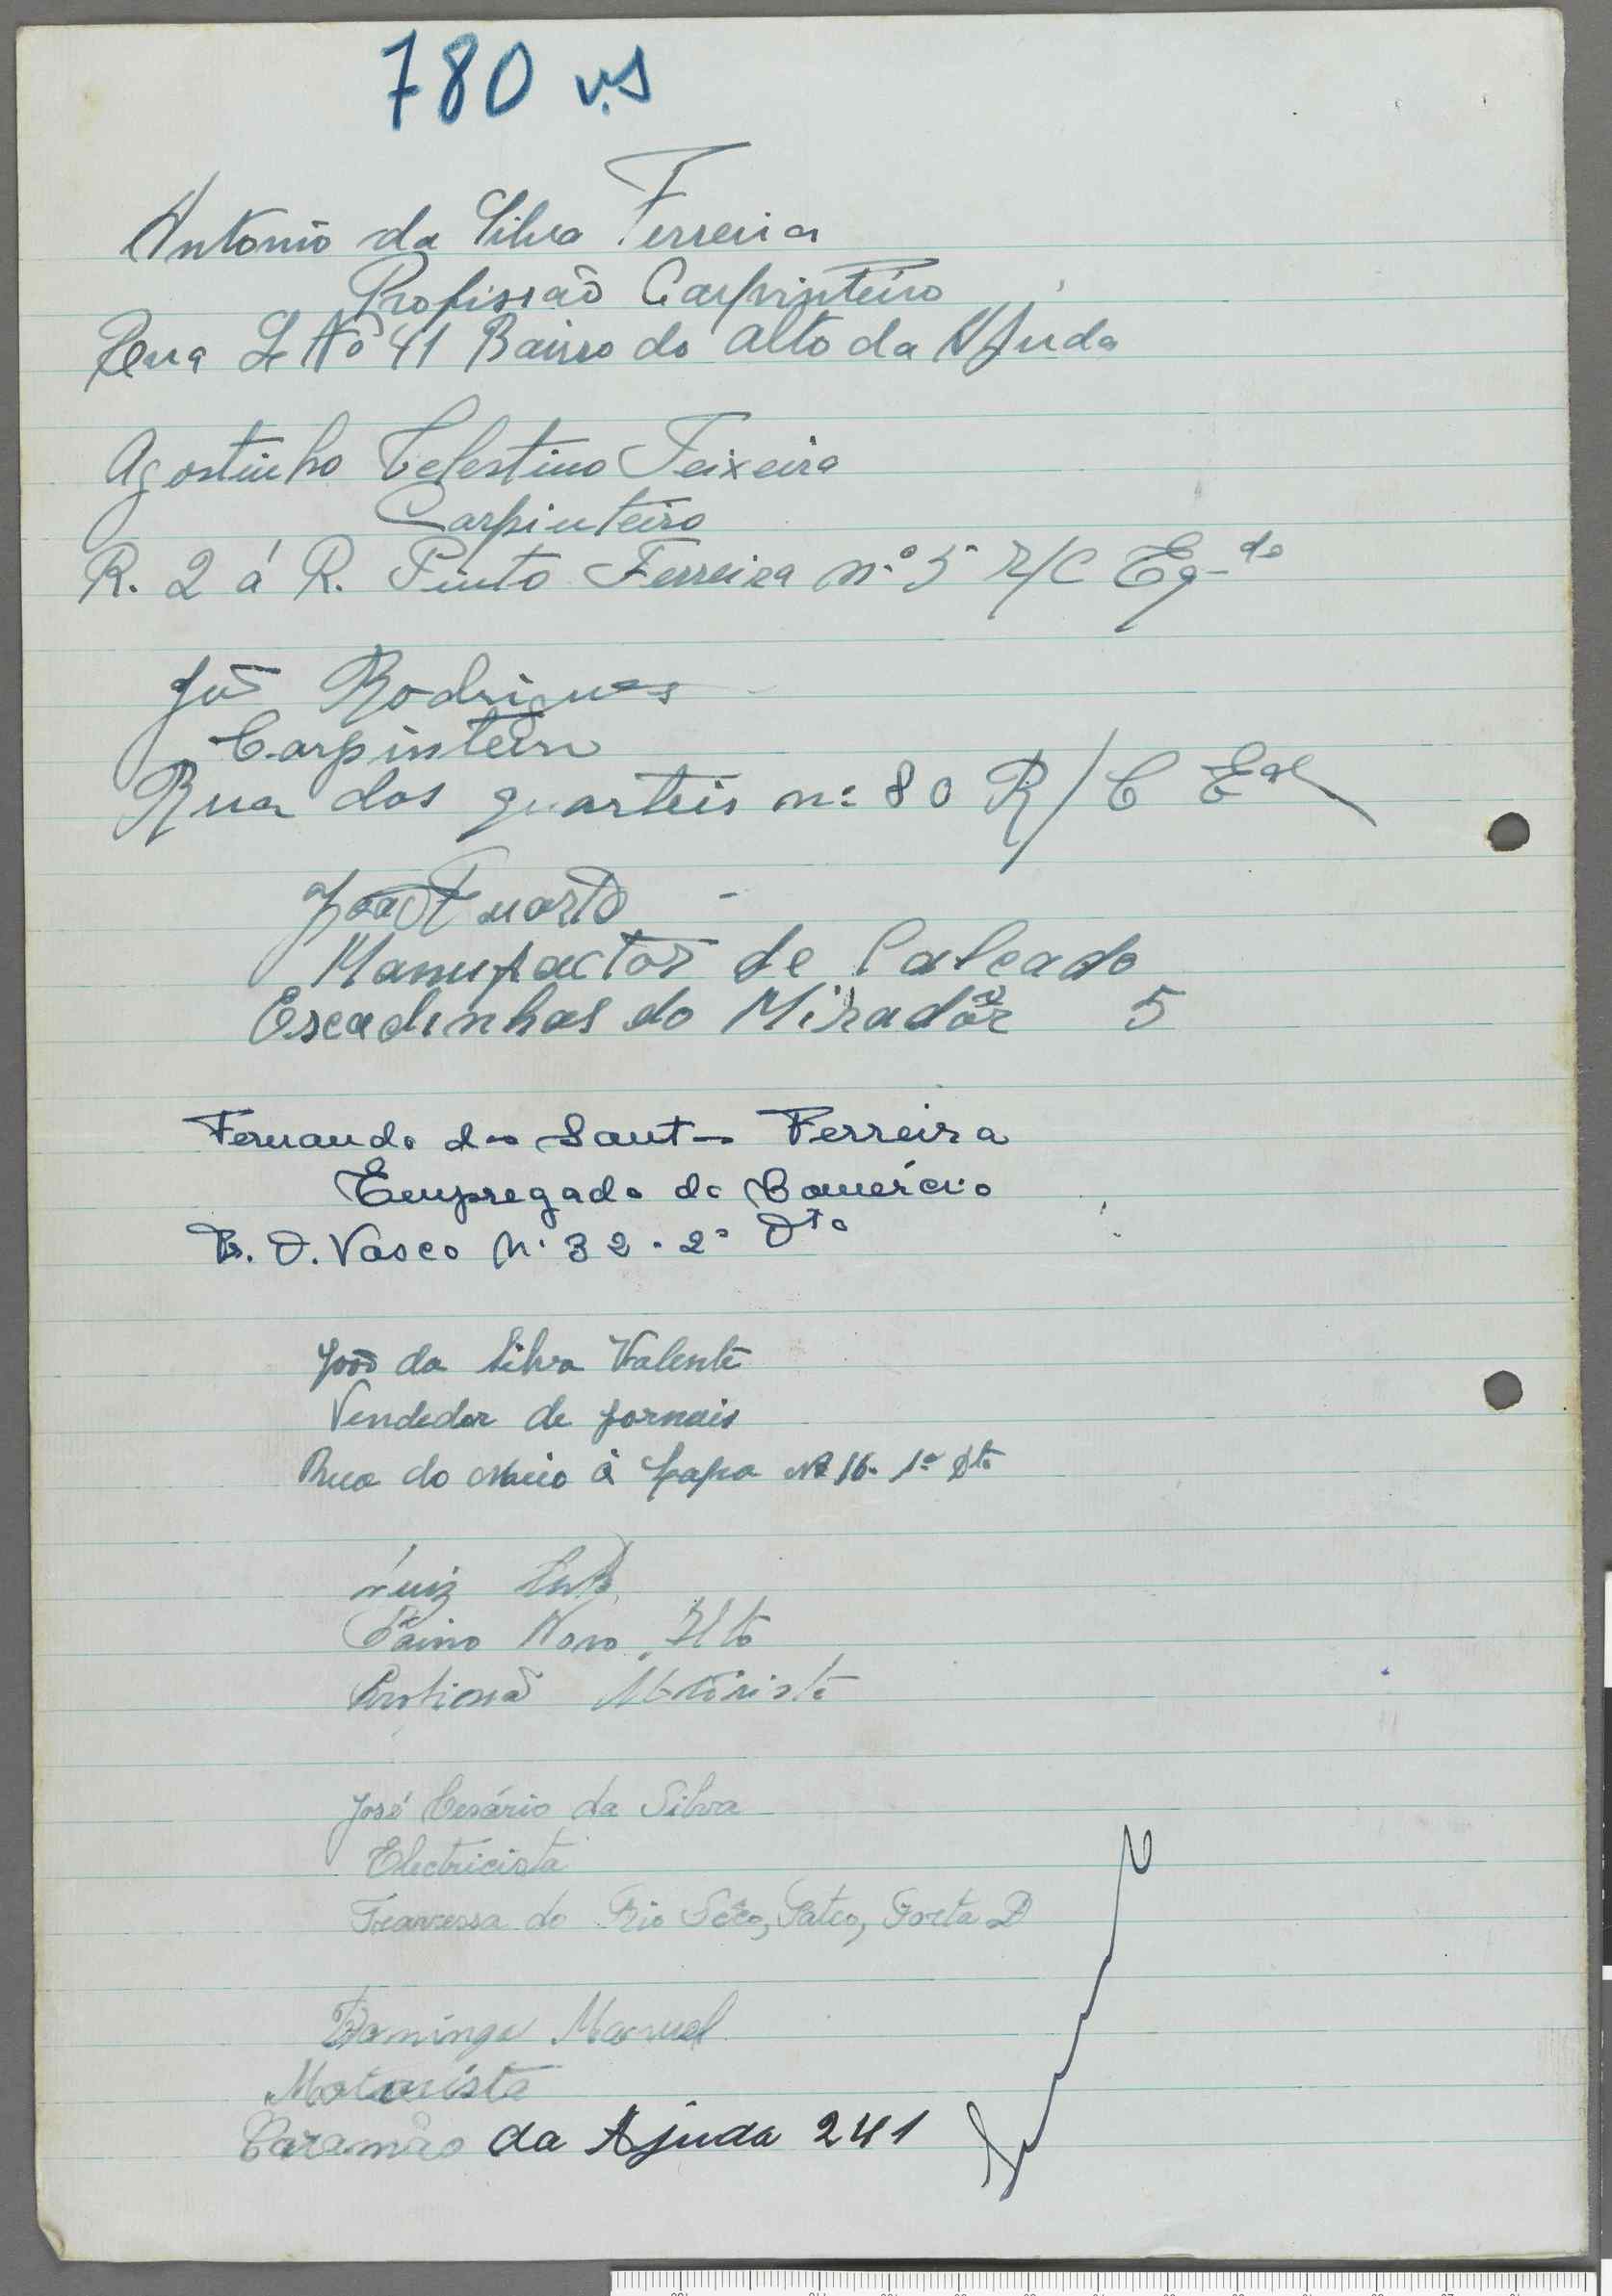 780 v.s
Antonio da Silva Ferreira
Profissão Carpinteiro
Rua L Nº 41 Bairro do Alto da Ajuda
Agostinho Celestino Teixeira
Carpinteiro
R. 2 á R. Pinto Ferreira nº 5 R/C Eq-do
Rodrigues
Carpinteiro
Rua dos quarteis nº 80 R/C Eqd
João Duarte
Manufactor de Calçado
Escadinhas do Mirador 5
Fernando dos Santos Ferreira
Empregado do Comércio
R. D. Vasco N. 32 - 2º Dto
João da Silva Valente
Vendedor de jornais
Rua do Meio á Lapa Nº 16 - 1º Dto
Luiz
Novo
Motorista
José Cesário da Silva
Electricista
Travessa do Rio Sêco, Pateo, Porta D
Domingo Manuel
Motorista
Caramão da Ajuda 241